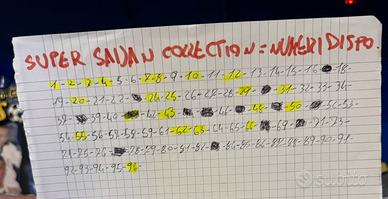 SUPER SAIJAN COLLECTION = NUMERI DISPO.
1-2-3-4-5-6-7-8-9-10-11-12-13-14-15-16- -18-
19-20-21-22- -24-25-26-28-28-29- -31-32-33-34-
-39-40- -43- -50- -52-53-
54-55-56-57-58-59-61-62-63-64-65-66- -69- -71-23-
74-75-76- -78-79-80-81-82- -84-85-86-88-89-90-91-
92-93-94-95-96
Subito